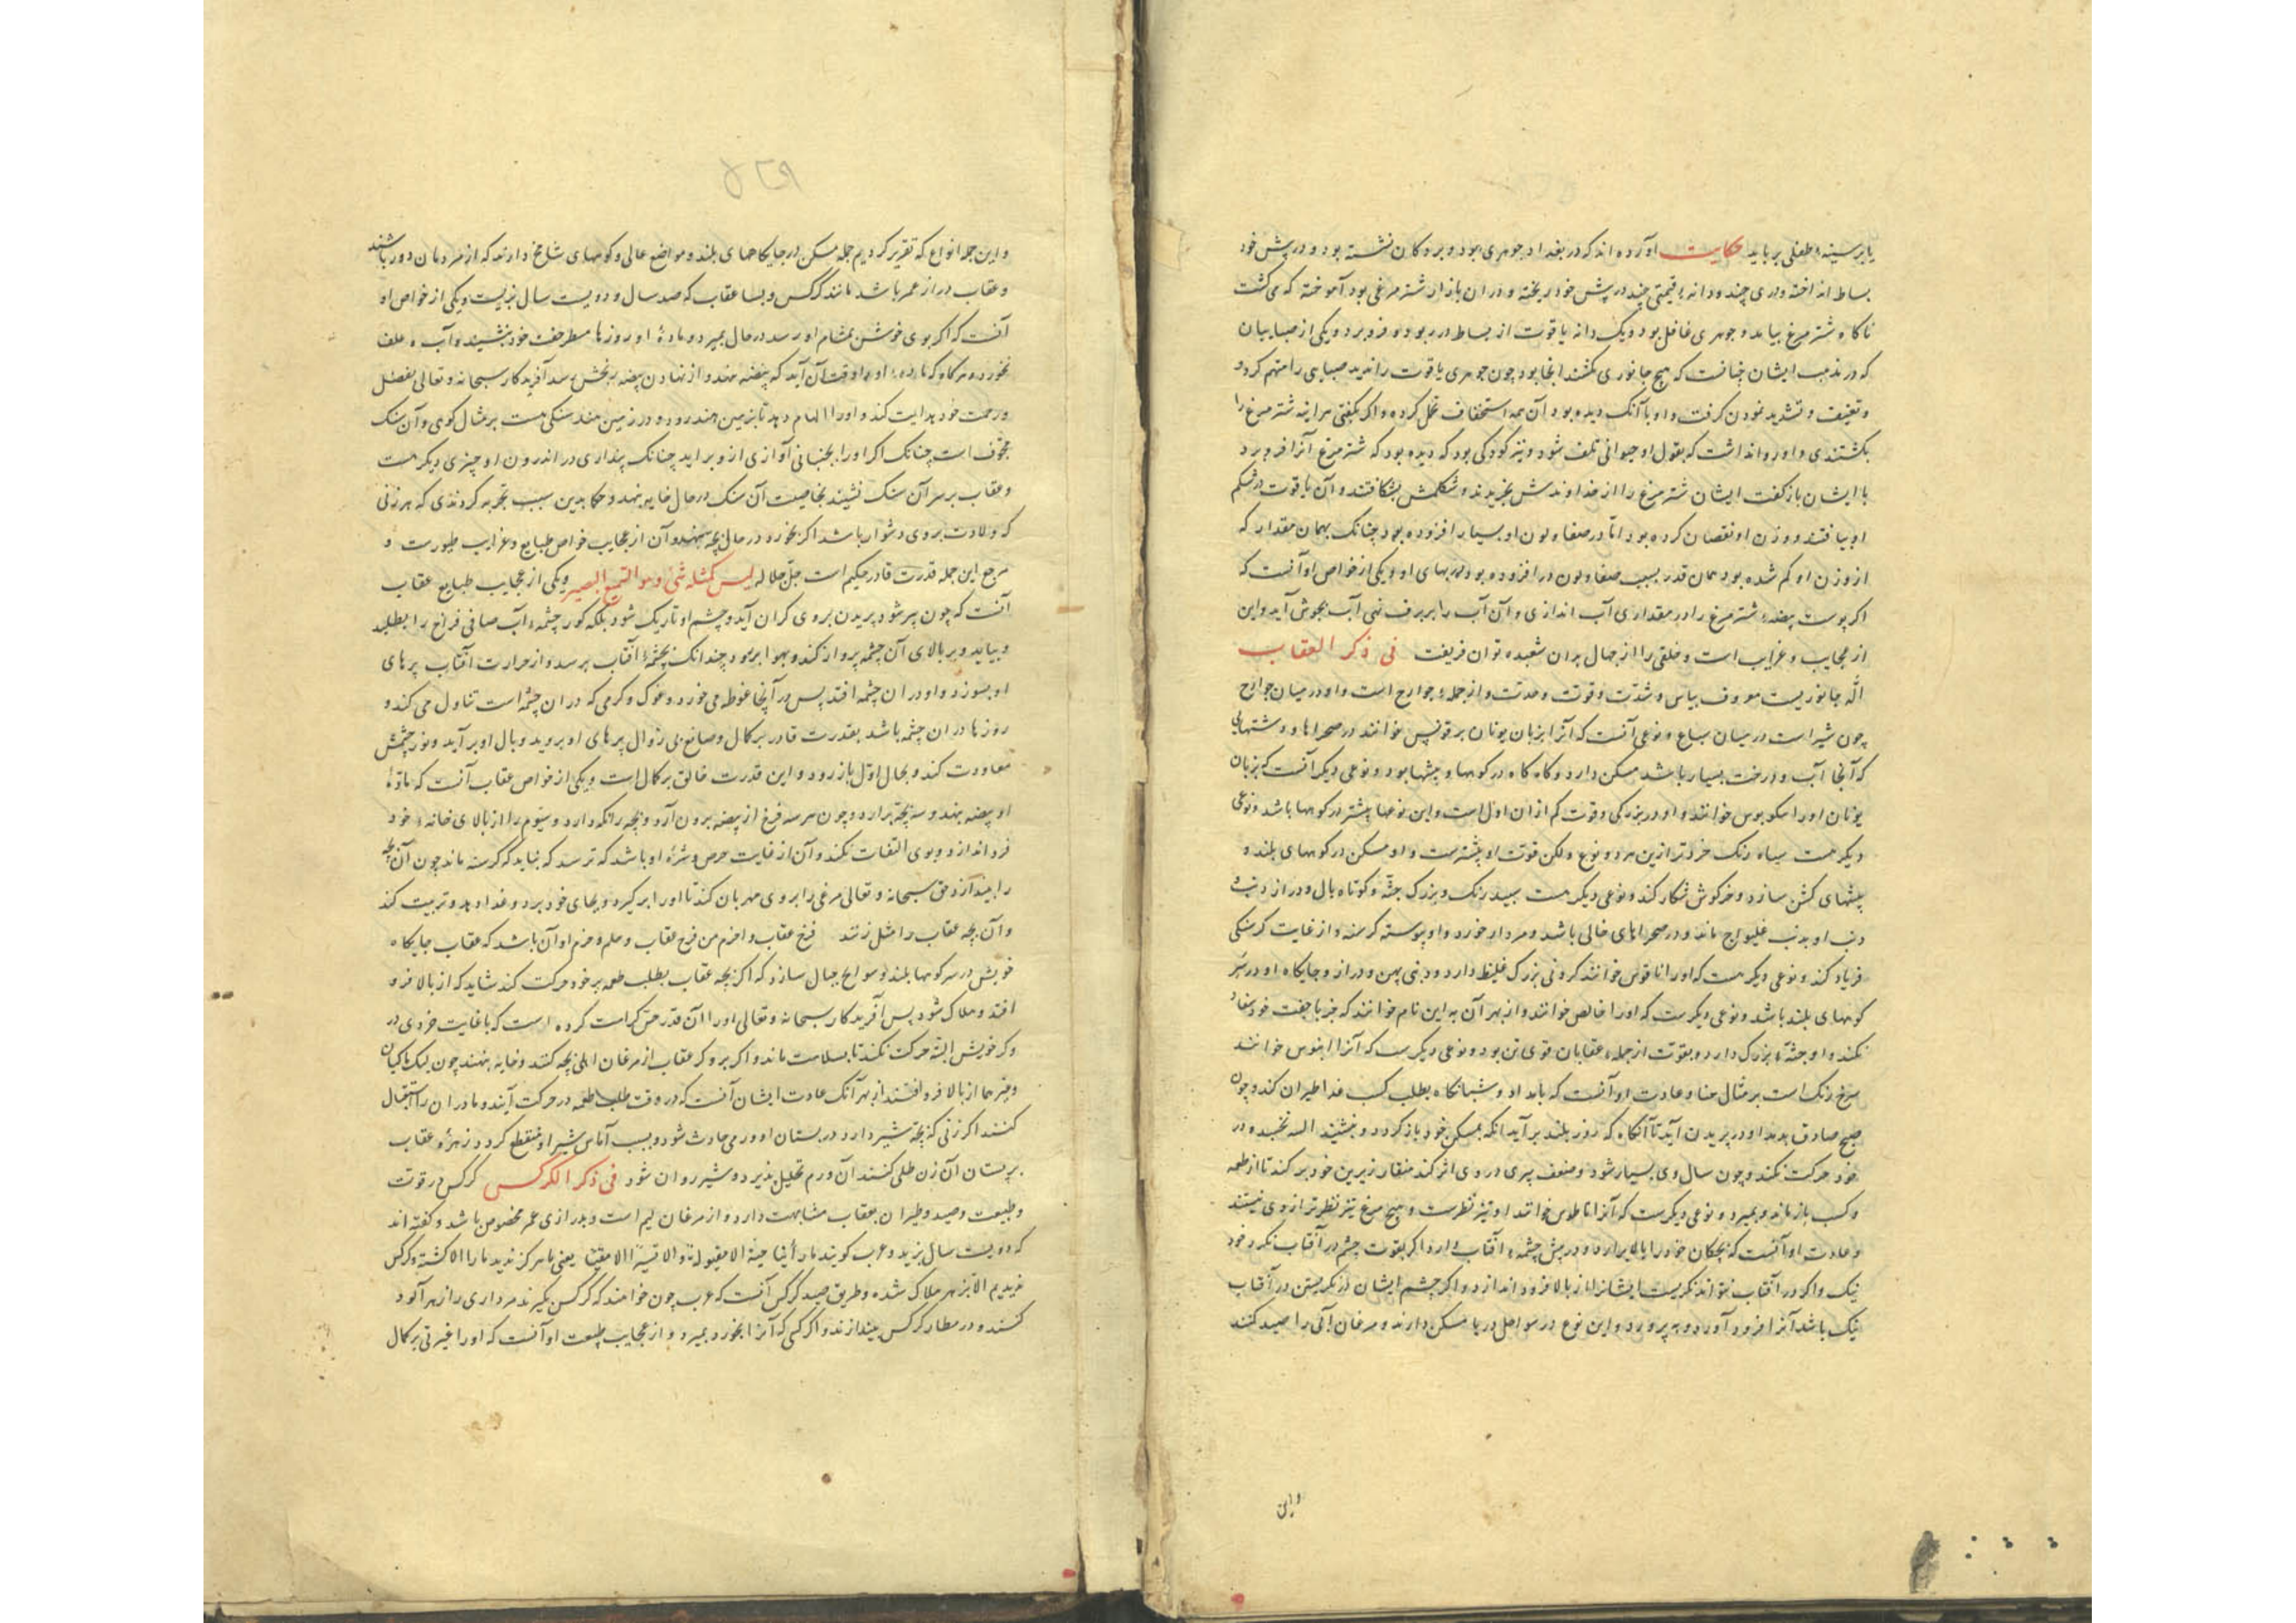 یا بر سینهٔ طفلی بر باید حکایت آورده اند که در بغداد جوهری بود و بر دکان نشسته بود و در پیش خود
بساط انداخته و دری چند و دانهٔ قیمتی چند در پیش خود ریخته و در ان بازار شتر مرغی بود آموخته که می کشت
ناکاه شتر مرغ بیامد و جوهری غافل بود و یک دانه یاقوت از بساط در ربود و فرو برد و یکی از صبابیان
که در مذهب ایشان چنانست که هیچ جانوری نکشند انجا بود چون جوهری یاقوت را ندید صبابی را متهم کرد و
و تعنیف و تشدید نمودن کرفت و او با آنک دیده بود آن همه استخفاف تحمل کرده و اکر بکفتی هر اینه شتر مرغ را
بکشتندی و او روا نداشت که بقول او حیوانی تلف شود و نیز کودکی بود که دیده بود که شتر مرغ آنرا فرو برد
با ایشان باز کفت ایشان شتر مرغ را از خداوندش بخریدند و شکمش بشکافتند و آن یاقوت در شکم
او بیافتند و وزن او نقصان کرده بود اما در صفا و لون او بسیار افزوده بود چنانک بهمان مقدار که
از وزن او کم شده بود همان قدر بسبب صفا و لون در افزوده بود در بهای او و یکی از خواص او آنست که
اکر پوست بیضهٔ شتر مرغ را در مقداری آب اندازی و آن آب را بر برف نهی آب بجوش آید و این
از عجایب و غرایب است و خلقی را از جهال بدان شعبده توان فریفت فی ذکر العقاب
اله جانوریست معروف بباس و شدت و قوت و حدت و از جملهٔ جوارح است و او در میان جوارح
چون شیر است در میان سباع و نوعی آنست که آنرا بزبان یونان برقونس خوانند در صحراها و دشتهایی
که آنجا آب و درخت بسیار باشد مسکن دارد و کاه کاه در کوهها و بیشها بود و نوعی دیکر آنست که بزبان
یونان او را خوانند و او در بزرکی و قوت کم از ان اول است و این نوعها بیشتر در کوهها باشد و نوعی
دیکر هست سیاه رنک خردتر ازین هر دو نوع ولکن قوت او بیشتر است و او مسکن در کوههای بلند و
بیشهای کشن سازد و خرکوش شکار کند و نوعی دیکر هست سپید رنک و بزرک جثه و کوتاه بال و دراز دنب
دنب او بدنب غلیواج ماند و در صحراهای خالی باشد و مردار خورد و او پیوسته کرسنه و از غایت کرسنکی
فریاد کند و نوعی دیکر هست که او را اناقوس خوانند کردنی بزرک غلیظ دارد و دنبی پهن و دراز و جایکاه او در سر
کوههای بلند باشد و نوعی دیکرست که او را خالص خوانند و از بهر آن به این نام خوانند که جز با جفت خود سفاد
نکند و او جثهٔ بزرک دارد و بقوت از جملهٔ عقابان قوی تن بود و نوعی دیکرست که آنرا خوانند
سرخ رنک است بر مثال حنا و عادت او آنست که بامداد و شبانکاه بطلب کسب غذا طیران کند و چون
صبح صادق بدمد او در پریدن آید تا آنکاه که روز بلند بر آید آنکه بمسکن خود باز کردد و بنشیند البته نخسبد و در
خود حرکت نکند و چون سال وی بسیار شود و ضعف پیری در وی اثر کند منقار زیرین خود بر کند تا از طعمه
و کسب باز ماند و بمیرد و نوعی دیکرست که آنرا اناطوس خوانند او تیز نظرست و هیچ مرغ تیز نظرتر از وی نیستند
و عادت او آنست که بچکان خود را بالا برآرد و در پیش چشمهٔ آفتاب دارد اکر بقوت چشم در آفتاب نکرد خود
نیک و اکر در آفتاب نتواند نکریست ایشانرا از بالا فرود اندازد و اکر چشم ایشان در نکریستن در آفتاب
نیک باشد آنرا فرود آورد و بپرورد و این نوع در سواحل دریا مسکن دارند و مرغان آبی را صید کنند
و این
۵۲۹
و این جمله انواع که تقریر کردیم جمله مسکن در جایکاههای بلند و مواضع عالی و کوههای شامخ دارند که از مردمان دور باشند
و عقاب دراز عمر باشد مانند کرکس و بسا عقاب که صد سال و دویست سال بزیست و یکی از خواص او
آنست که اکر بوی خوش بمشام او رسد در حال بمیرد و مادهٔ او روزها مسطر جفت خود بنشیند و آب و علف
نخورد و هرکاه که مادهٔ او را وقت آن آید که بیضه نهد و از نهادن بیضه رنجش رسد آفریدکار سبحانه و تعالی بفضل
و رحمت خود هدایت کند و او را الهام دهد تا بزمین هند رود و در زمین هند سنکی هست بر مثال کوی و آن سنک
مجوف است چنانک اکر او را بجنبانی آوازی از و براید چنانک پنداری در اندرون او چیزی دیکر هست
و عقاب بر سر آن سنک نشیند بخاصیت آن سنک در حال خایه بنهد و حکما بدین سبب تجربه کردندی که هر زنی
که ولادت بر وی دشوار باشد اکر بخورد در حال بچه بنهد و آن از عجایب خواص طبایع و غرایب طیورست و
مرجع این جمله قدرت قادر حکیم است جل جلاله لیس کمثله شی و هو السمیع البصیر و یکی از عجایب طبایع عقاب
آنست که چون پیر شود پریدن بر وی کران آید و چشم او تاریک شود بلکه کور چشمهٔ آب صافی فراخ را بطلبد
و بیابد و بر بالای آن چشمه پرواز کند و بهوا بر رود چندانک بچشمهٔ آفتاب برسد و از حرارت آفتاب پرهای
او بسوزد و او در ان چشمه افتد پس در آنجا غوطه می خورد و غوک و کرمی که در ان چشمه است تناول می کند و
روزها در ان چشمه باشد بقدرت قادر بر کمال و صانع بی زوال پرهای او بروید و بال او بر آید و نور چشمش
معاودت کند و بحال اول باز رود و این قدرت خالق بر کمال است و یکی از خواص عقاب آنست که مادهٔ
او بیضه بنهد و سه بچه برارد و چون هر سه فرخ از بیضه برون آرد دو بچه را نکه دارد و سیوم را از بالای خانهٔ خود
فرو اندازد و بوی التفات نکند و آن از غایت حرص و شره او باشد که ترسد که نباید که کرسنه ماند چون آن بچه
را بیندازد حق سبحانه و تعالی مرغی را بر وی مهربان کند تا او را بر کیرد و بجای خود برد و غذا دهد و تربیت کند
و آن بچه عقاب را مثل زنند فرخ عقاب و احزم من فرخ عقاب و حلم و حزم او آن باشد که عقاب جایکاه
خویش در سر کوهها بلند و سوامخ جبال سازد که اکر بچه عقاب بطلب طعمه بر خود حرکت کند شاید که از بالا فرو
افتد و هلاک شود پس آفریدکار سبحانه و تعالی او را آن قدر حس کرامت کرده است که با غایت خردی در
وکر خویش البته حرکت نکند تا بسلامت ماند و اکر بر وکر عقاب از مرغان اهلی بچه کنند و خایه بنهند چون کبک و ماکیان
و غیرهما از بالا فرو افتند از بهر آنک عادت ایشان آنست که در وقت طلب طعمه در حرکت آیند و مادران را استقبال
کنند اکر زنی که بچهٔ شیر دارد در پستان او ورمی حادث شود و بسبب آماس شیر او منقطع کردد زهرهٔ عقاب
بر پستان آن زن طلی کنند آن ورم تحلیل پذیرد و شیر روان شود فی ذکر الکرکس کرکس در قوت
و طبیعت و صید و طیران بعقاب مشابهت دارد و از مرغان لیم است و بدرازی عمر مخصوص باشد و کفته اند
که دویست سال بزید و عرب کویند ما رأینا حیة الا مقتولة و لا یعنی ما هرکز ندیدیم مار را الا کشته و کرکس
ندیدیم الا بزهر هلاک شده و طریق صید کرکس آنست که عرب چون خواهند که کرکس بکیرند مرداری را زهر آلود
کنند و در مطار کرکس بیندازند و اکر کرکسی که آنرا بخورد بمیرد و از عجایب طبیعت او آنست که او را غیرتی بر کمال